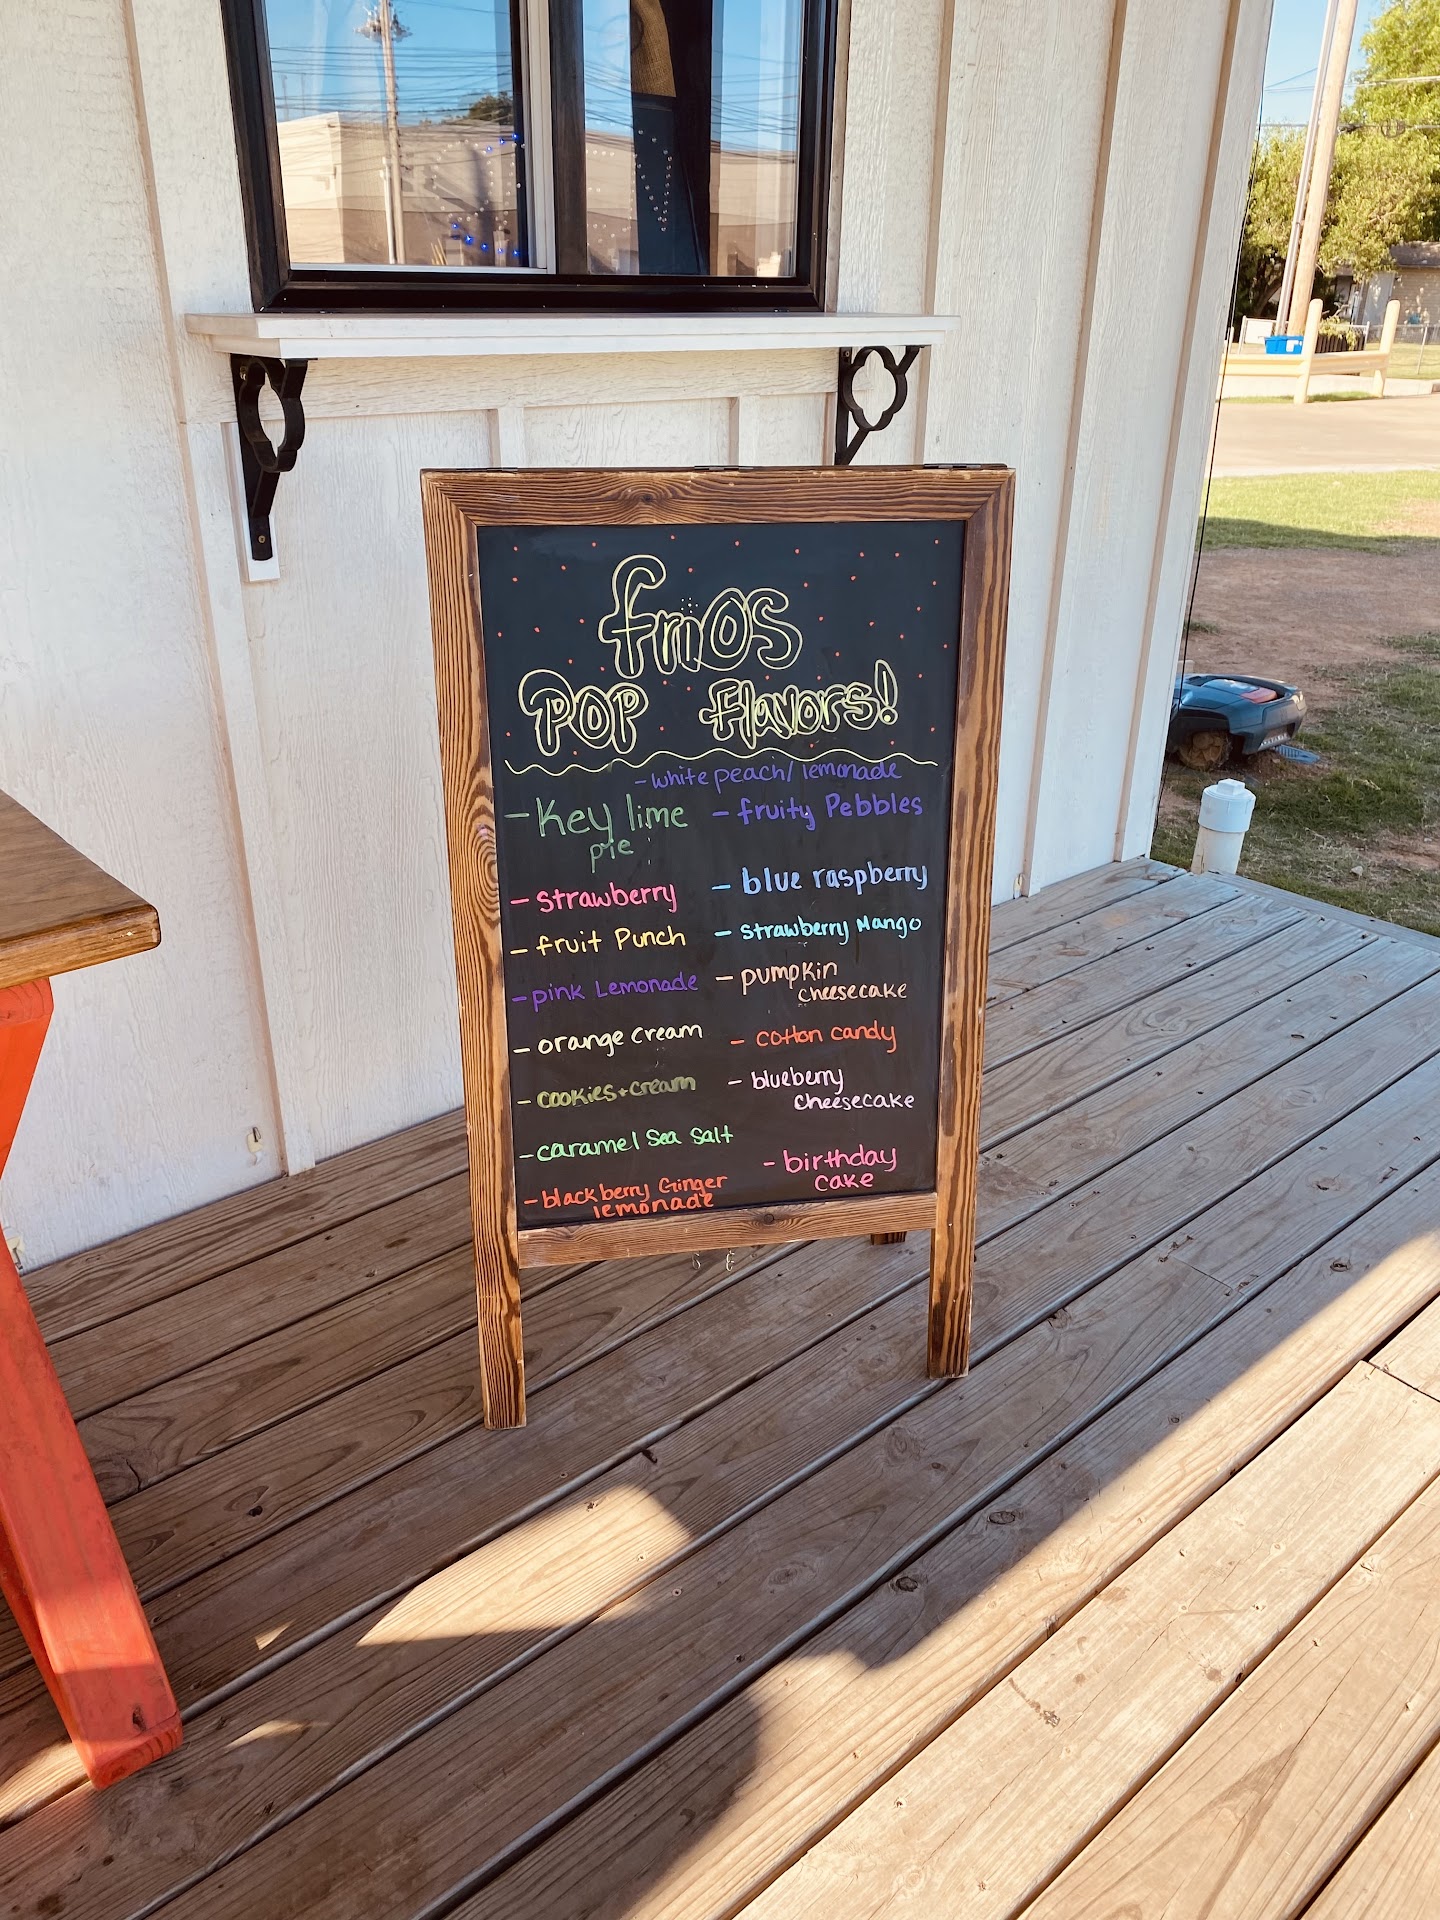 frios
POP Flavors!
- white peach/lemonade
- Key lime
pie
- strawberry
- fruit Punch
- pink Lemonade
- orange cream
- cookies + cream
- caramel sea salt
- blackberry Ginger
lemonade
- fruity Pebbles
- blue raspberry
- strawberry Mango
- pumpkin
cheesecake
- cotton candy
- blueberry
cheesecake
- birthday
cake